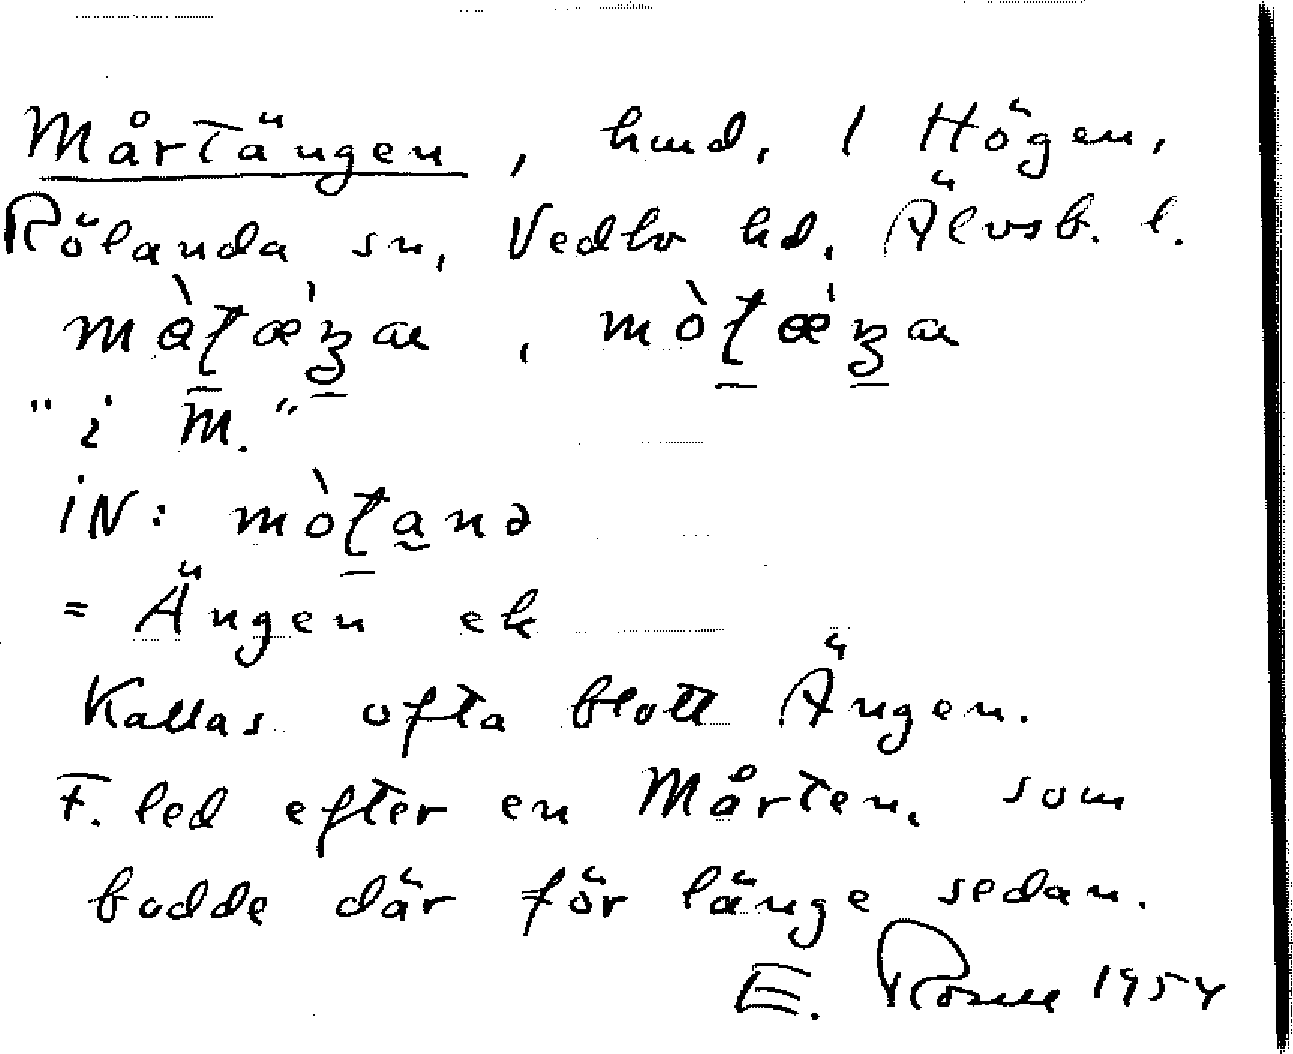 Mårtängen, hmd, 1 Högen,
Rölanda sn, Vedbo hd, Älvsb. l.
"i M."
iN: mòṯa̰nə
= Ängen ek
Kallas ofta blott Ängen.
F. led efter en Mårten, som
bodde där för länge sedan.
E. Rosell 1954